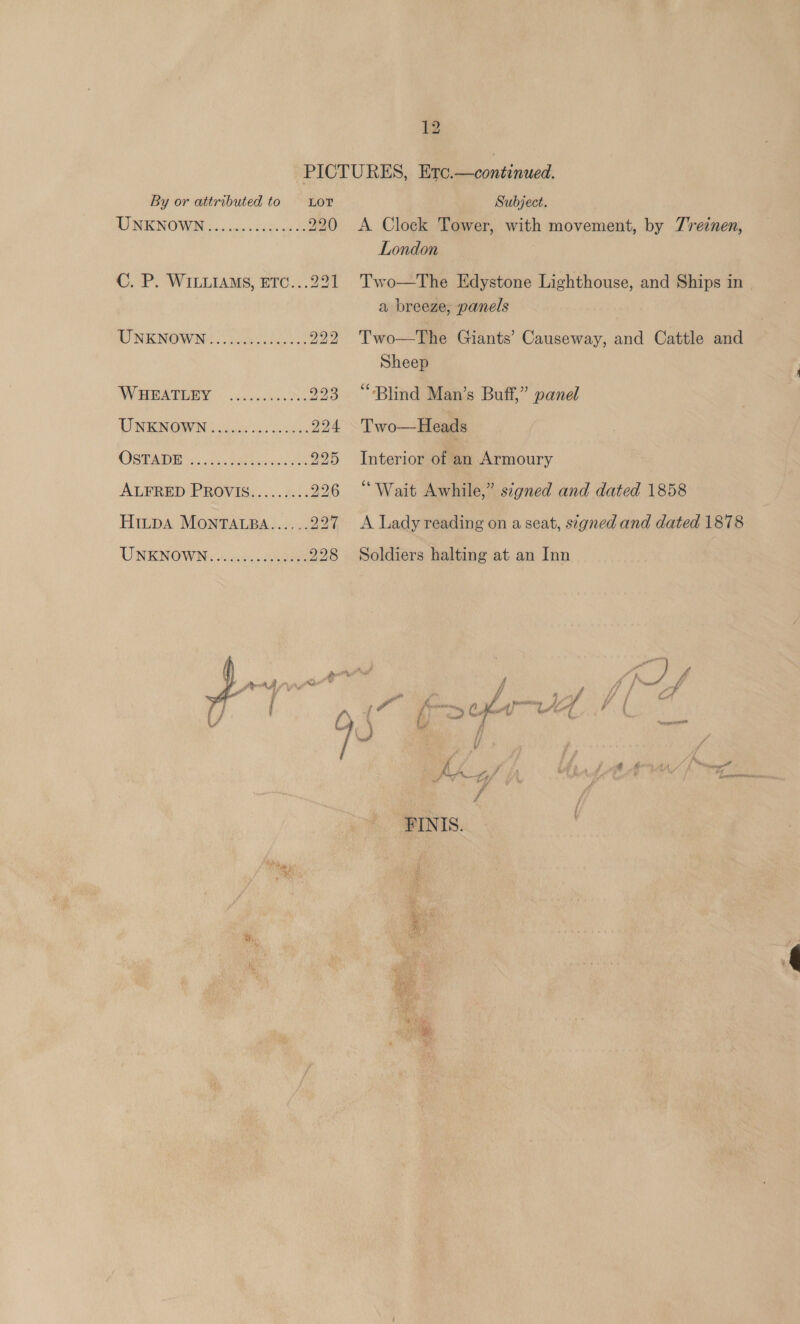 12
PICTURES, ETC.—continued.
By or attributed to LOT Subject.
UNKNOWN...............220 A Clock Tower, with movement, by Treinen,
London
C. P. WILLIAMS, ETC...221 Two—The Edystone Lighthouse, and Ships in
a breeze, panels
UNKNOWN...............222 Two—The Giants’ Causeway, and Cattle and
Sheep
WHEATLEY ............223 “Blind Man’s Buff,” panel
UNKNOWN...............224 Two—Heads
OSTADE ..................225 Interior of an Armoury
ALFRED PROVIS.........226 “Wait Awhile,” signed and dated 1858
HILDA MONTALBA......227 A Lady reading on a seat, signed and dated 1878
UNKNOWN...............228 Soldiers halting at an Inn
FINIS.